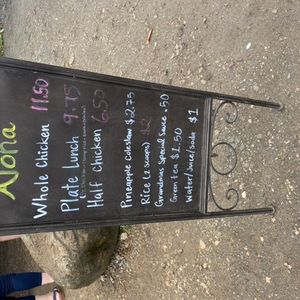 Aloha
Whole Chicken 11.50
Plate Lunch 9.75
Half Chicken 6.50
Pineapple coleslaw $2.75
Rice (2 scoops) $2
Grandmas Special Sauce .50
Green tea $1.50
Water/Juice/soda $1